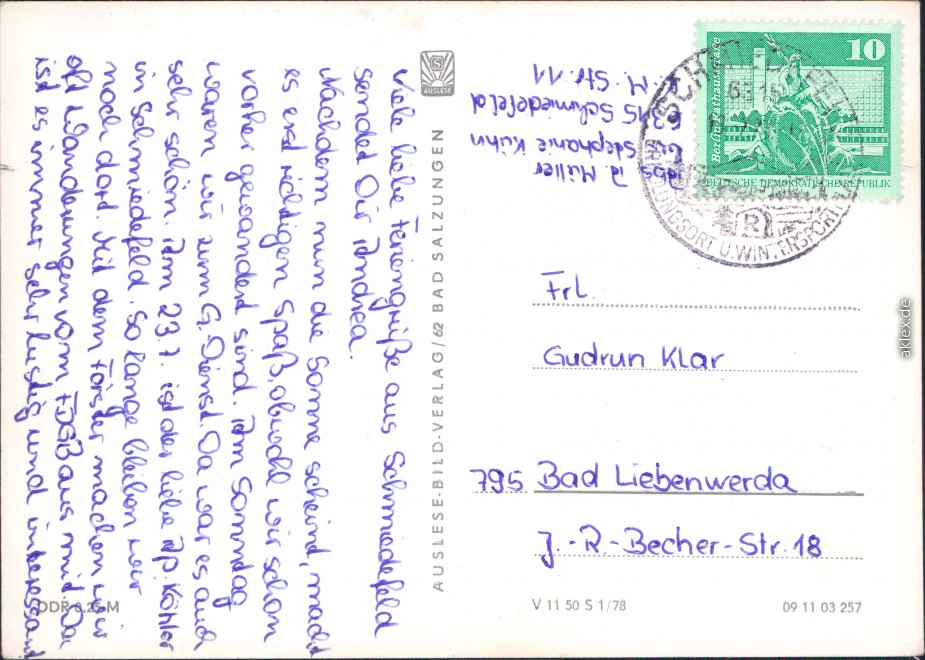 Viele liebe Feriengrüße aus Schmiedefeld
sendet Dir Andrea.
Nachdem nun die Sonne scheint, macht
es erst richtigen Spaß, obwohl wir schon
vorher gewandert sind. Am Sonntag
waren wir zum G. Dienst. Da war es auch
sehr schön. Am 23.7. ist der liebe Ap. Köhler
in Schmiedefeld. So lange bleiben wir
noch dort. Mit dem Förster machen wir
oft Wanderungen vom FDGB aus mit. Da
ist es immer sehr lustig und interessant
DDR 0,25 M
AUSLESE
AUSLESE-BILD-VERLAG/62 BAD SALZUNGEN
Abs. A. Müller
bei Stephanie Kühn
6315 Schmiedefeld
Str. 11
10
Berlin Rathausstraße
DEUTSCHE DEMOKRATISCHE REPUBLIK
SCHMIEDEFELD
ERHOLUNGSORT U. WINTERSPORT
R
Frl.
Gudrun Klar
795 Bad Liebenwerda
J.-R.-Becher-Str. 18
V 11 50 S 1/78
09 11 03 257
aklex.de